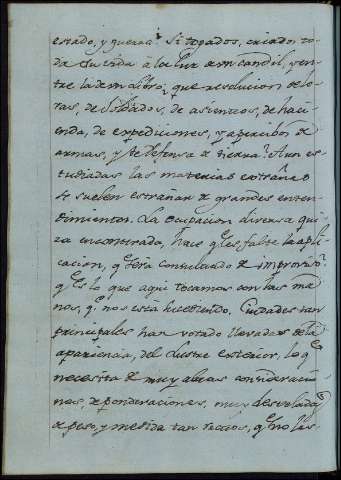 estado, y guerra? Si togados, criados to
da su vida à la luz de un candil, y en
tre la de un Libro, que resolucion de flo
tas, de Soldados, de asientos, de haci
enda, de expediciones, y apercibos de
armas, y de defensa de tierra? Aun es
tudiadas las materias estrañas
se suelen estrañar de grandes enten
dimientos. La ocupacion diversa qui
za encontrada, hace q.e les falte la apli
cacion, q.e será consultando de improviso?
q.e es lo que aqui tocamos con las ma
nos, q.e nos está sucediendo. Ciudades tan
principales han votado llevadas de la
apariencia, del lustre exterior, lo q.e
necesita de muy altas consideracio
nes, de ponderaciones, muy desveladas
de peso, y medida tan fieles, q.e no las